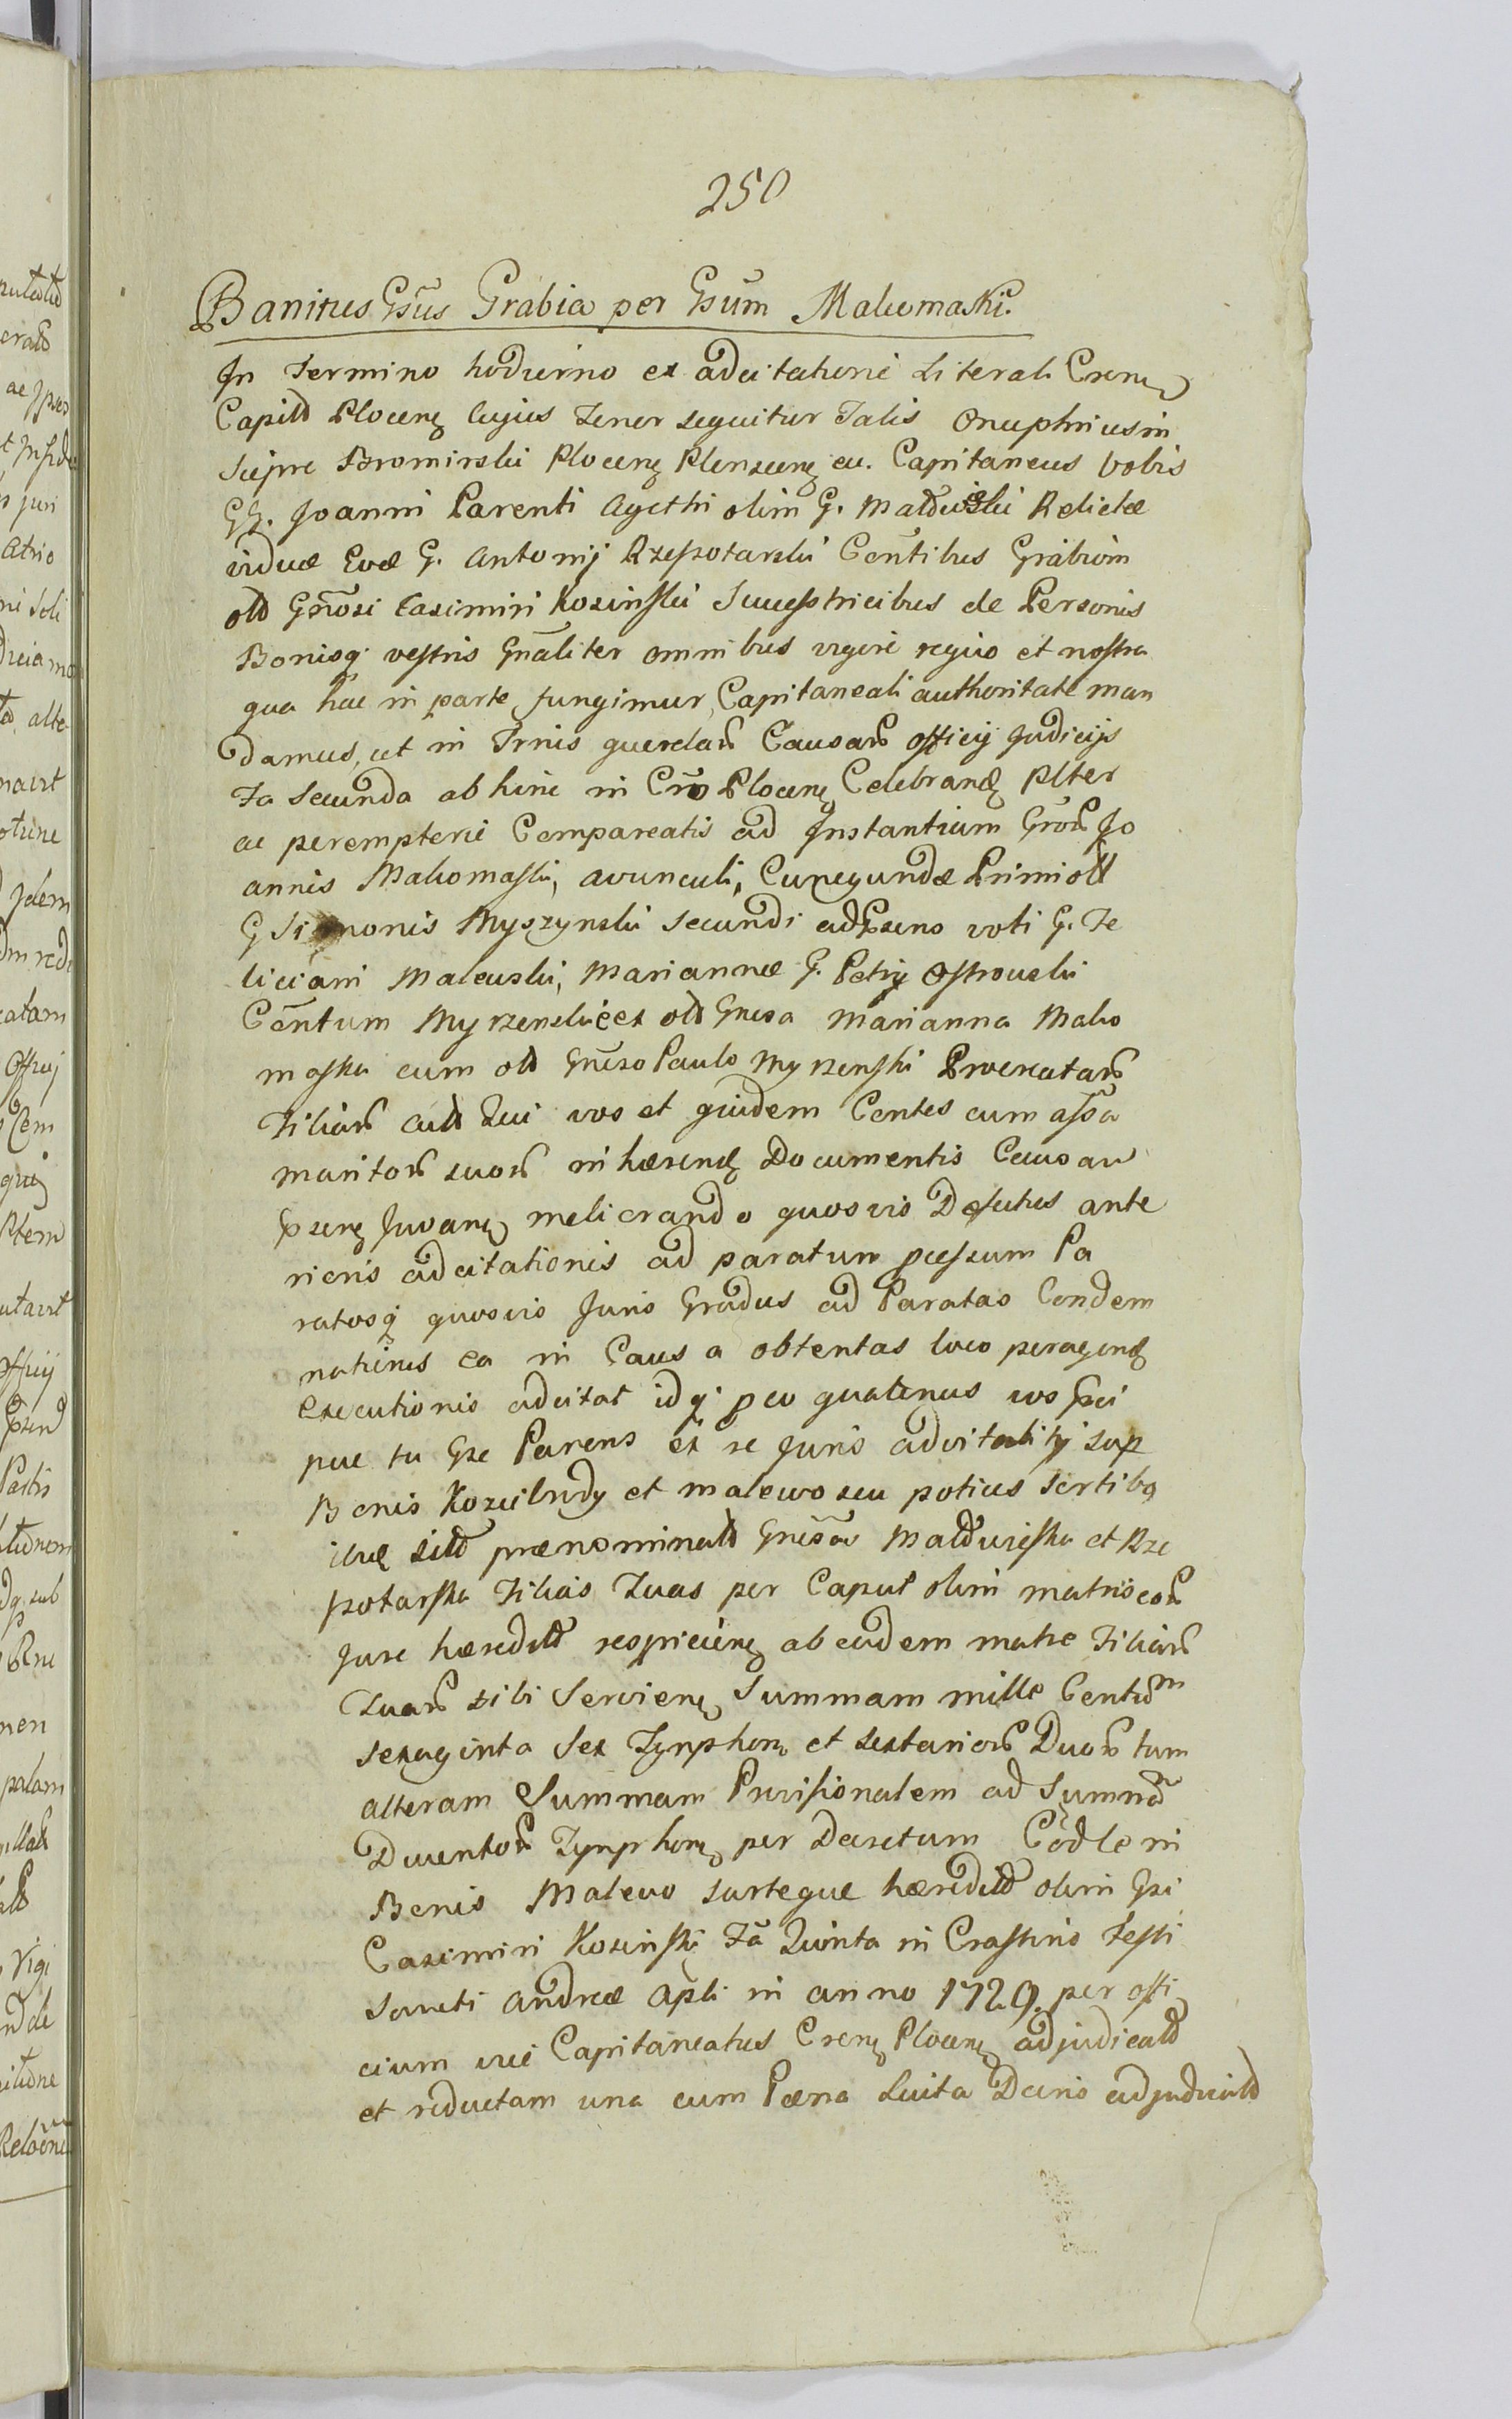 250
Banitus Gsus Grabia per Gsum Malomaski.
In Termino hodierno ex adcitatione Literali Crens
Capitl Plocens Cujus Tenor sequitur Talis Onuphrius in
Siepre Bromirski Plocens Plonscens cu. Capitaneus vobis
GG. Joanni Parenti Agethi olim G. Relictæ
viduæ Evæ G. Antonij Rzeszotarski Centibus Grabiom
old Gnrosi Casimiri Kosinski Successtricibus de Personis
Bonisq vestris Gnaliter omnibus vigore regio et nostra
qua hac in parte fungimur, Capitaneali authoritate man
damus, ut in Trnis querelar Causar officij Judicijs
Fa secunda ab hinc in Cro Plocens Celebrand Plter
ac peremptorie Compareatis ad Instantiam Gror Jo
annis Malomaski, avunculi, Cunegundæ Primi old
G Simonis Myszynski secundi ad Psens voti G. Fe
liciani Maleuski, Mariannæ G. Petri Ostrouski
Centum Myrzenski ex old Gnesa Marianna Malo
maska cum old Gneso Paulo Myrzenski Procreatar
Filiar Qui vos et quidem Centes cum assa
maritor suor inhærend Documentis Causar
Psens Juvans meliorando quosvis Defectus ante
rioris adcitationis ad paratum pcessum Pa
ratosq quosvis Juris Gradus ad Paratas Condem
nationes ea in Causa obtentas loco peragend
executionis adcitat idq peo quatenus vos Pci
pue tu Gse Parens ex se Juris advitalitij sup
Bonis Kozie et Malewo seu potius sortibq
prænominatl Gnesas et Rze
szotarska Filias Tuas per Caput olim matris eor
Jure hæreditl respiciens ab eadem matre Filiar
Tuar sibi serviens Summam mille Centum
sexaginta sex Tynphor et sextarior Duor tum
alteram Summam Provisionalem ad Summa
Ducentor Tynphor per Decretum Codle in
Bonis Malewo sorteque hæreditl olim Gsi
Casimiri Kosinski Fa Quinta in Crastino Festi
Sancti Andreæ Apli in anno 1729. per offi
cium vice Capitaneatus Crens Plocens adjudicatl
et reductam una cum Pæna Luita Decris adjudicatl